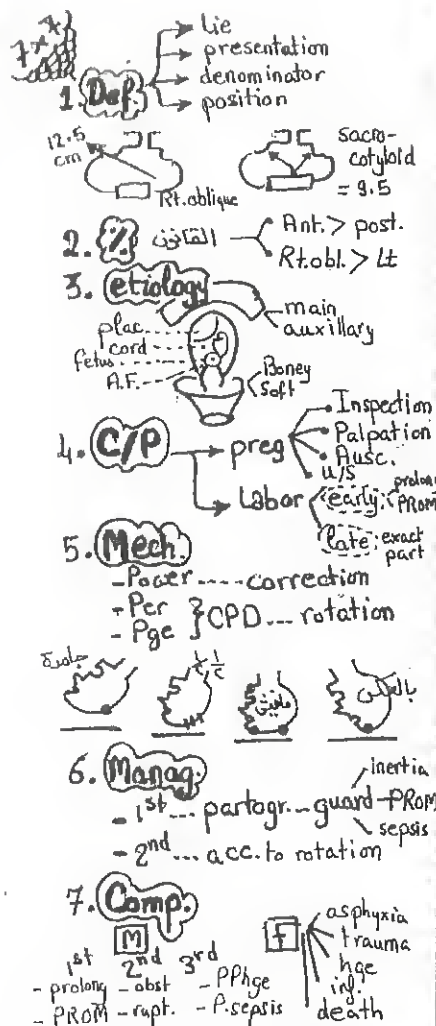 7 x 7
1. Def.
lie
presentation
denominator
position
12.5 cm
Rt.oblique
sacro-
cotyloid
= 9.5
2. % القانون
Ant. > post.
Rt.obl. > Lt
3. etiology
main
auxillary
plac.
cord
fetus
A.F.
Boney
Soft
4. C/P
preg
Inspection
Palpation
Ausc.
u/s
Labor
early: prolong PROM
late: exact part
5. Mech.
- Power .... correction
- Per
- Pge } CPD ... rotation
6. Manag.
- 1st ... partogr... guard
inertia
PROM
sepsis
- 2nd ... acc. to rotation
7. Comp.
M
1st 2nd 3rd
- prolong - obst - PPhge
- PROM - rupt. - P.sepsis
F
asphyxia
trauma
hge
inf.
death